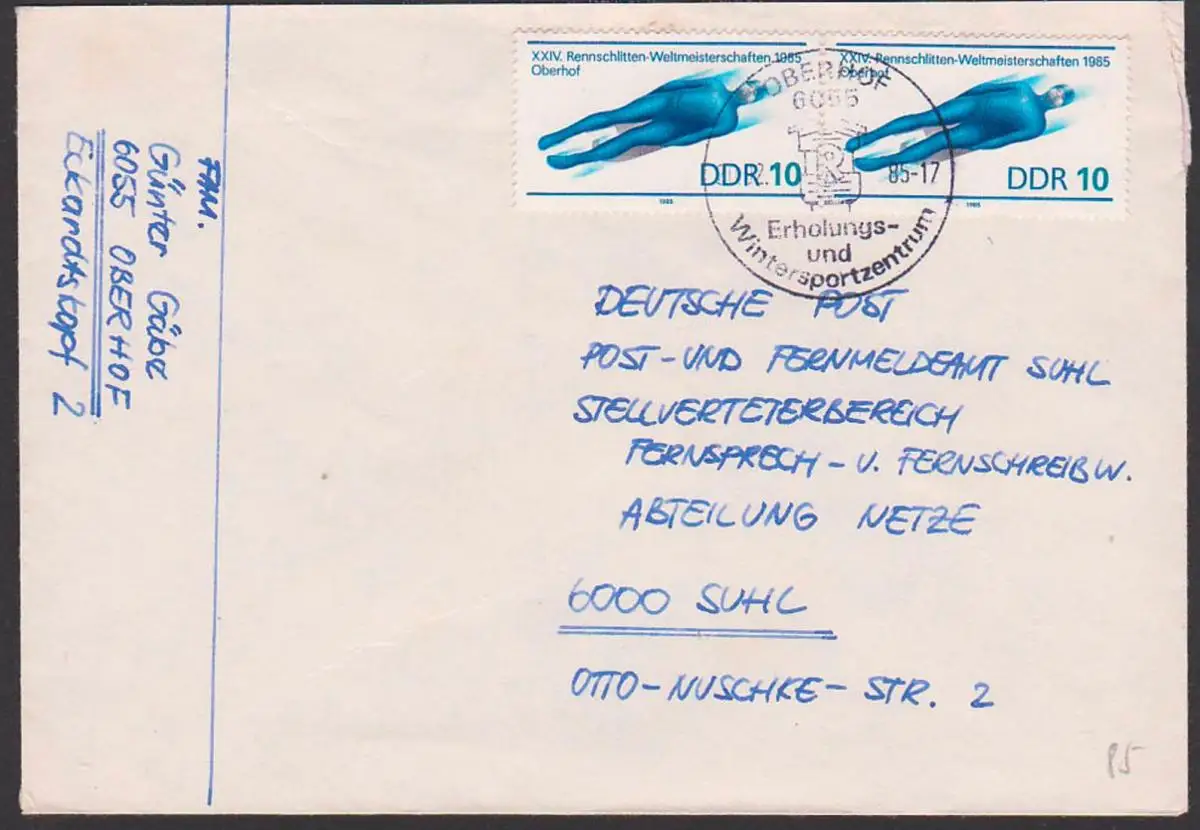 XXIV. Rennschlitten-Weltmeisterschaften 1985
Oberhof
DDR 10
1985
XXIV. Rennschlitten-Weltmeisterschaften 1985
Oberhof
DDR 10
1985
OBERHOF
6055
R
2. 85-17
Erholungs-
und
Wintersportzentrum
FAM.
Günter Gäbe
6055 OBERHOF
Eckardtskopf 2
DEUTSCHE POST
POST-UND FERNMELDEAMT SUHL
STELLVERTETERBEREICH
FERNSPRECH-U. FERNSCHREIBW.
ABTEILUNG NETZE
6000 SUHL
OTTO-NUSCHKE-STR. 2